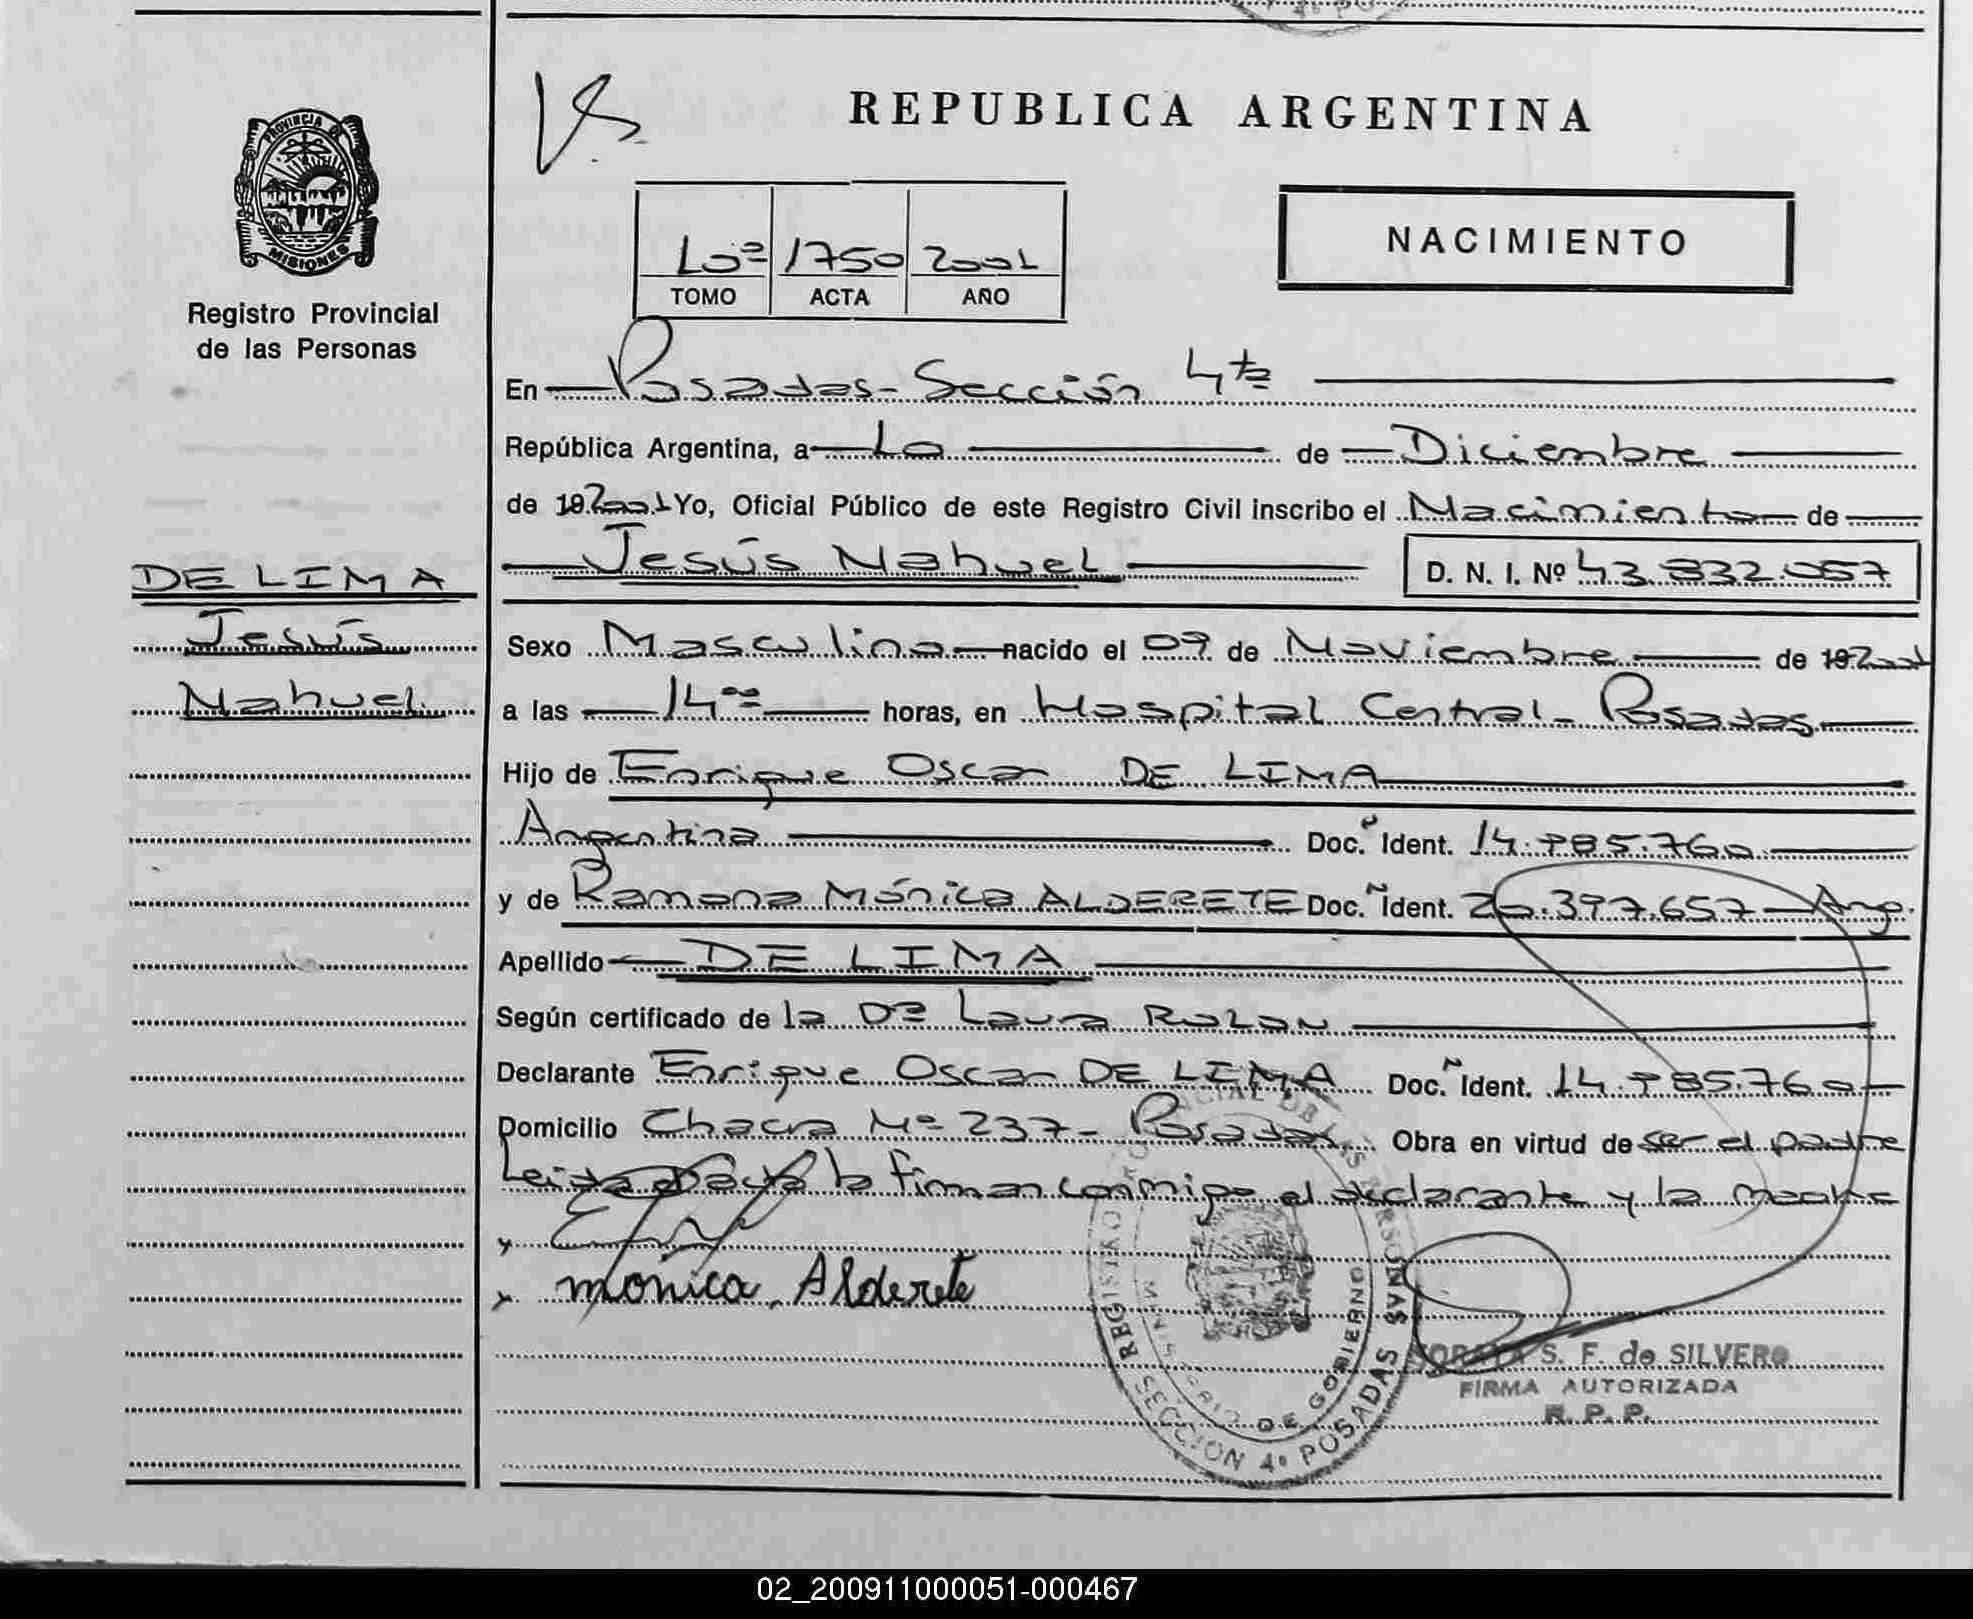 REPUBLICA ARGENTINA
PROVINCIA DE
MISIONES
Registro Provincial
de las Personas
NACIMIENTO
10º 1750 2001
TOMO ACTA AÑO
En Posadas-Sección 4ta
República Argentina, a 10 de Diciembre
de 19 2001 Yo, Oficial Público de este Registro Civil inscribo el Nacimiento de
Jesús Nahuel D. N. I. Nº 43.832.057
DE LIMA
Jesús
Nahuel
Sexo Masculino nacido el 09 de Noviembre de 19 2001
a las 14ºº horas, en Hospital Central - Posadas
Hijo de Enrique Oscar DE LIMA
Argentina Doc. Ident. 14.785.760
y de Ramona Mónica ALDERETE Doc. Ident. 20.397.657 - Arg.
Apellido DE LIMA
Según certificado de la Dra Laura ROLON
Declarante Enrique Oscar DE LIMA Doc. Ident. 14.785.760
Domicilio Chacra Nº 237 - Posadas Obra en virtud de ser el padre
Leida el acta la firman conmigo el declarante y la madre
monica Alderete
REGISTRO PROVINCIAL DE LAS PERSONAS
MINISTERIO DE GOBIERNO
SECCION 4º POSADAS
S. F. de SILVERO
FIRMA AUTORIZADA
R. P. P.
02_200911000051-000467